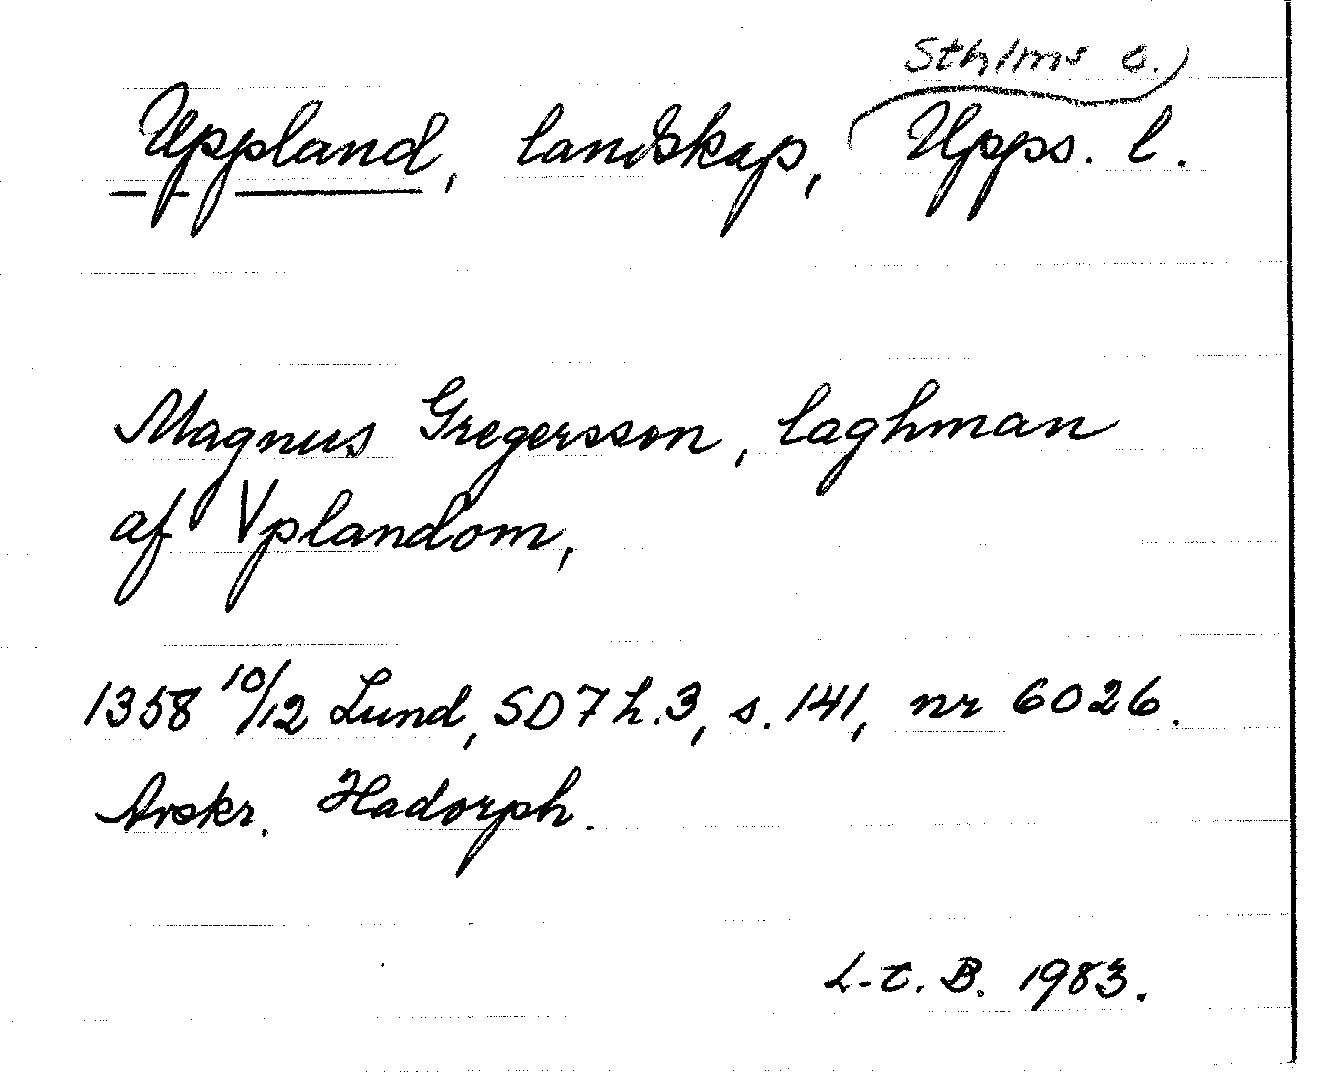 Sthlms l.)
Uppland, landskap, (Upps. l.
Magnus Gregersson, laghman
af Vplandom,
1358 10/12 Lund, SD 7 h.3, s. 141, nr 6026.
Avskr. Hadorph.
L-t. B. 1983.